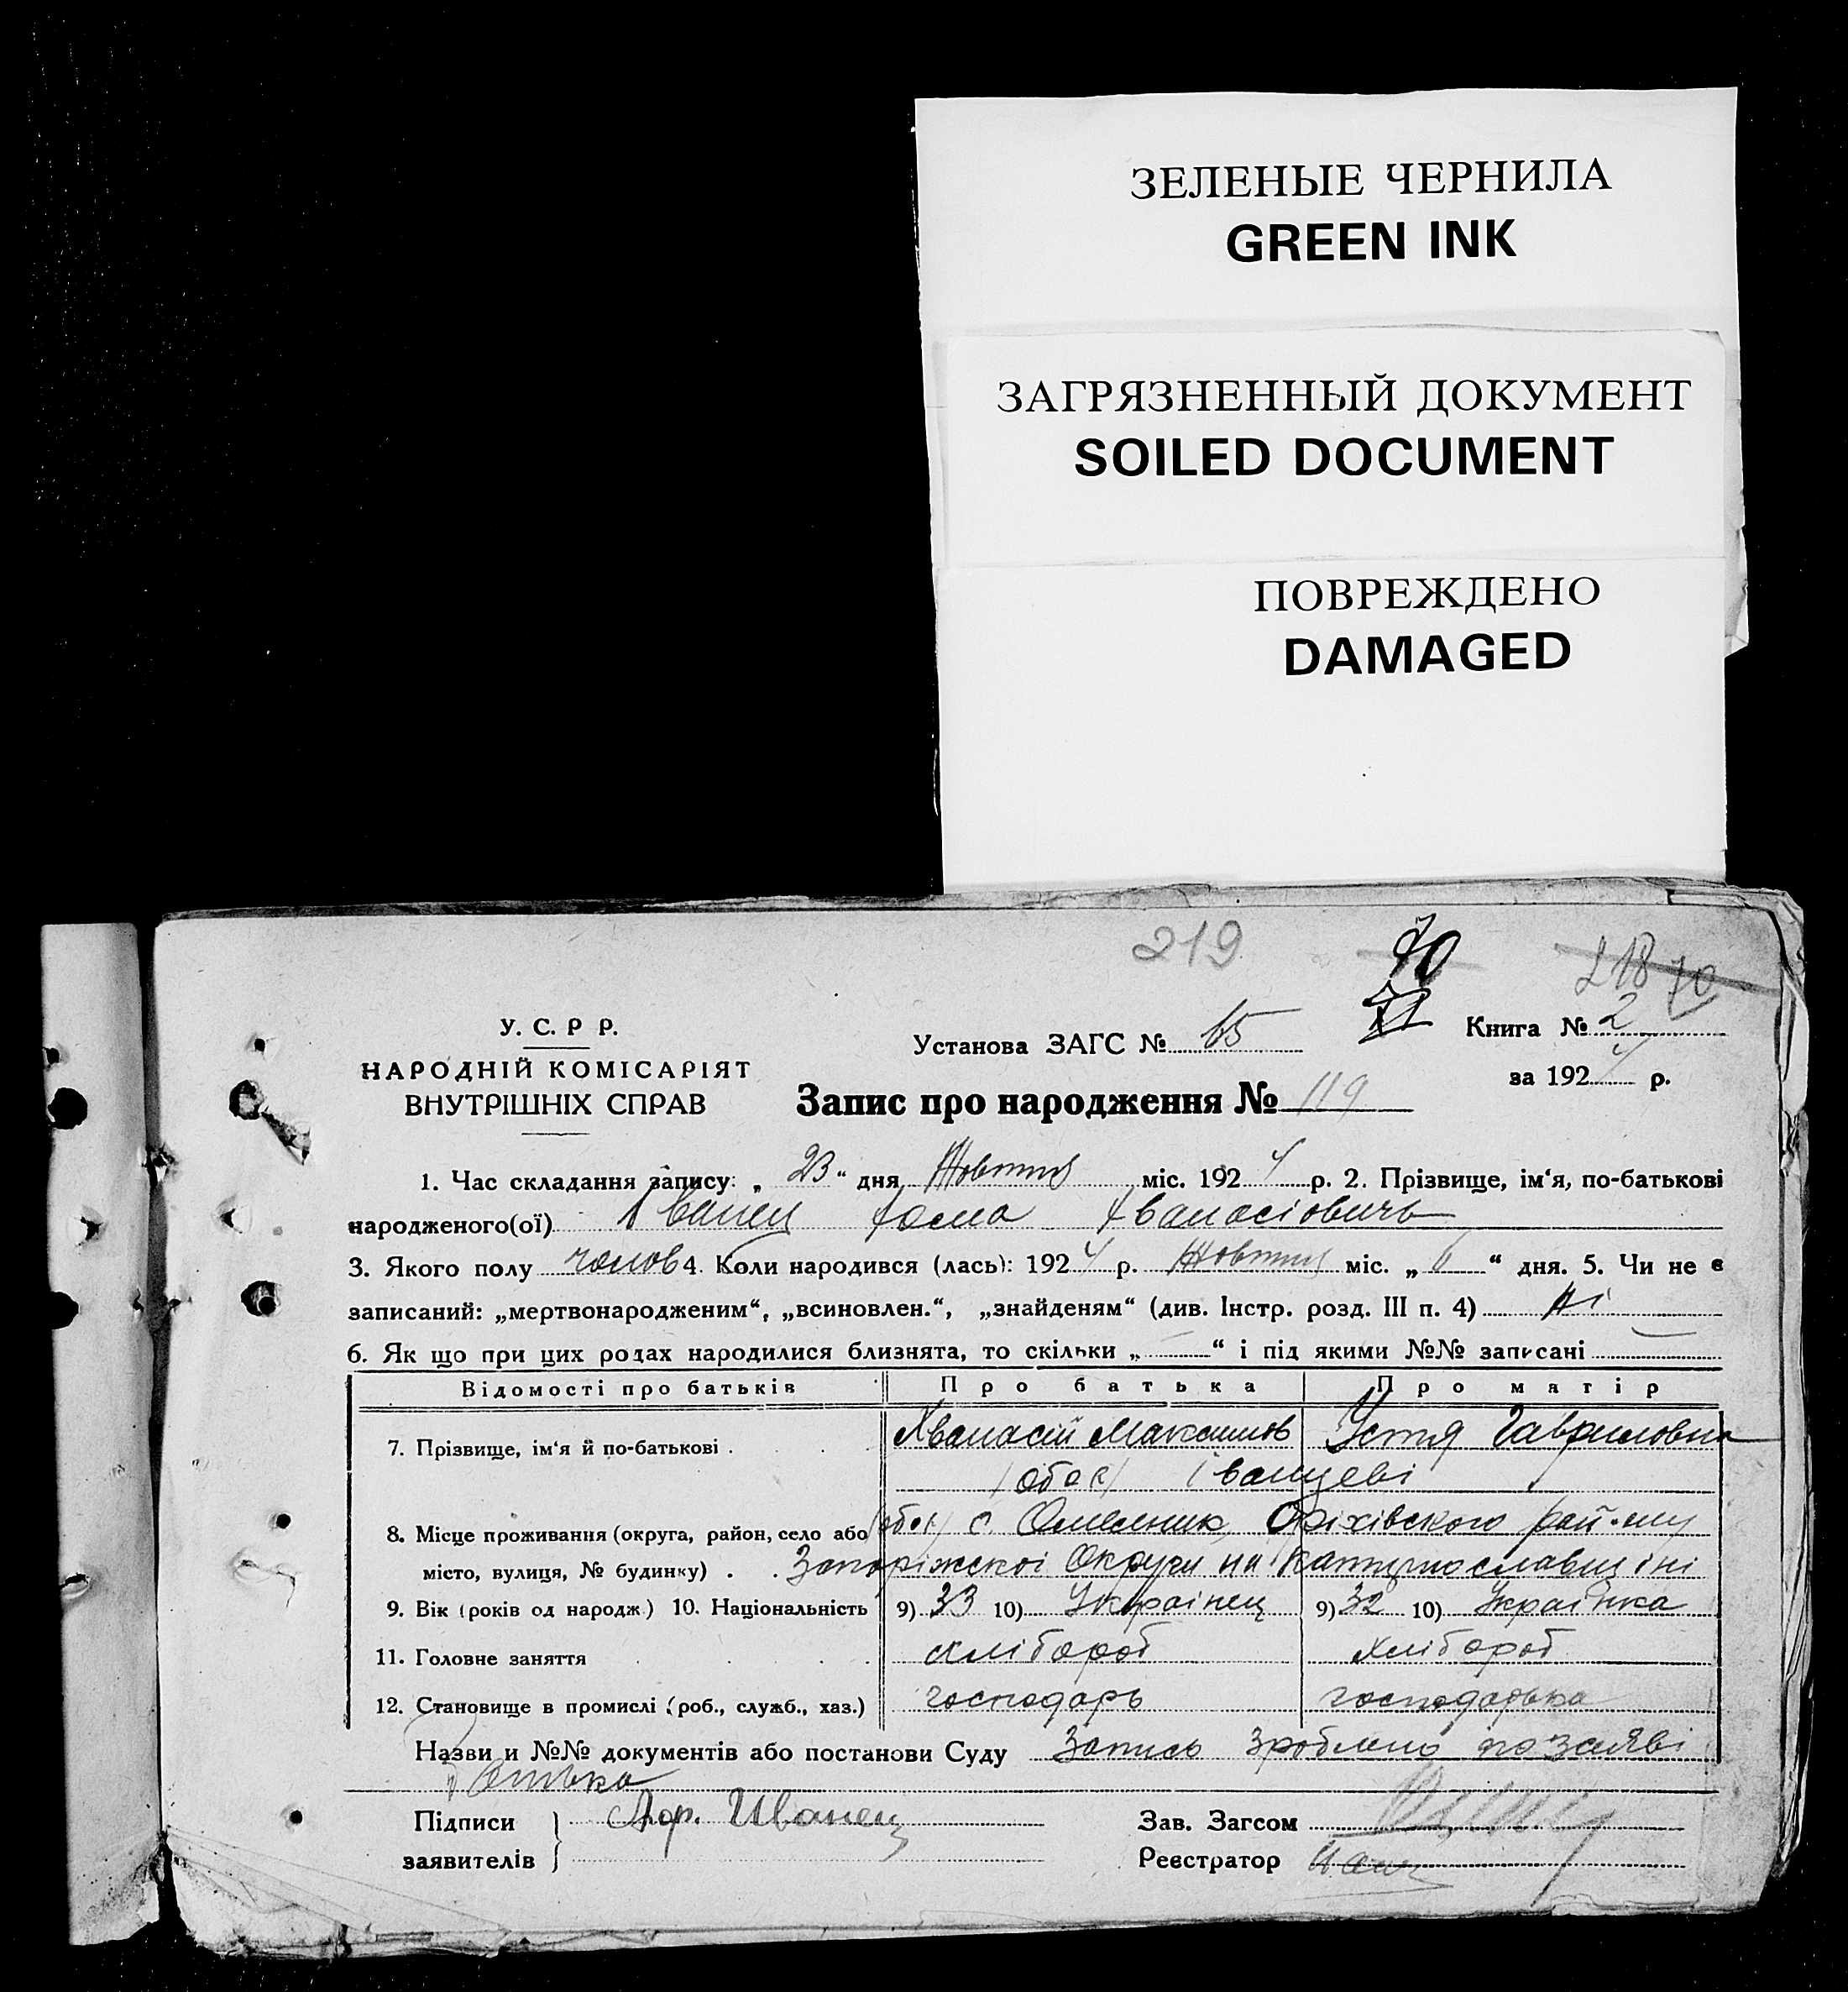 ЗЕЛЕНЫЕ ЧЕРНИЛА
GREEN INK
ЗАГРЯЗНЕННЫЙ ДОКУМЕНТ
SOILED DOCUMENT
ПОВРЕЖДЕНО
DAMAGED
219 70 218 70
У. С. Р Р.
НАРОДНІЙ КОМІСАРІЯТ
ВНУТРІШНІХ СПРАВ
Установа ЗАГС № 65
Книга № 2
за 1924 р.
Запис про народження № 119
1. Час складання запису: „ 23 “ дня Жовтня міс. 1924 р. 2. Прізвище, ім‘я, по-батькові
народженого(ої) Іванец Хома Хванасіовичь
3. Якого полу чолов 4. Коли народився (лась): 1924 р. Жовтня міс. „ 6 “ дня. 5. Чи не є
записаний: „мертвонародженим“, „всиновлен.“, „знайденям“ (див. Інстр. розд. III п. 4) Ні
6. Як що при цих родах народилися близнята, то скільки „ — “ і під якими №№ записані —
Відомості про батьків Про батька Про матір
7. Прізвище, ім‘я й по-батькові . Хванасій Максимов Устя Гавриловна
/обоє/ Іванцеві
8. Місце проживання (округа, район, село або с. Омельник, Оріхівского рай-ну
місто, вулиця, № будинку) . . Запоріжскої Округи на Катеринославщіні
9. Вік (років од народж.) 10. Національність 9) 33 10) Українец 9) 32 10) Українка
11. Головне заняття хлібороб хлібороб
12. Становище в промислі (роб., служб., хаз.) господарь господарька
Назви и №№ документів або постанови Суду Запись зроблено по заяві
батька
Підписи Аф. Иванец Зав. Загсом
заявителів Реєстратор